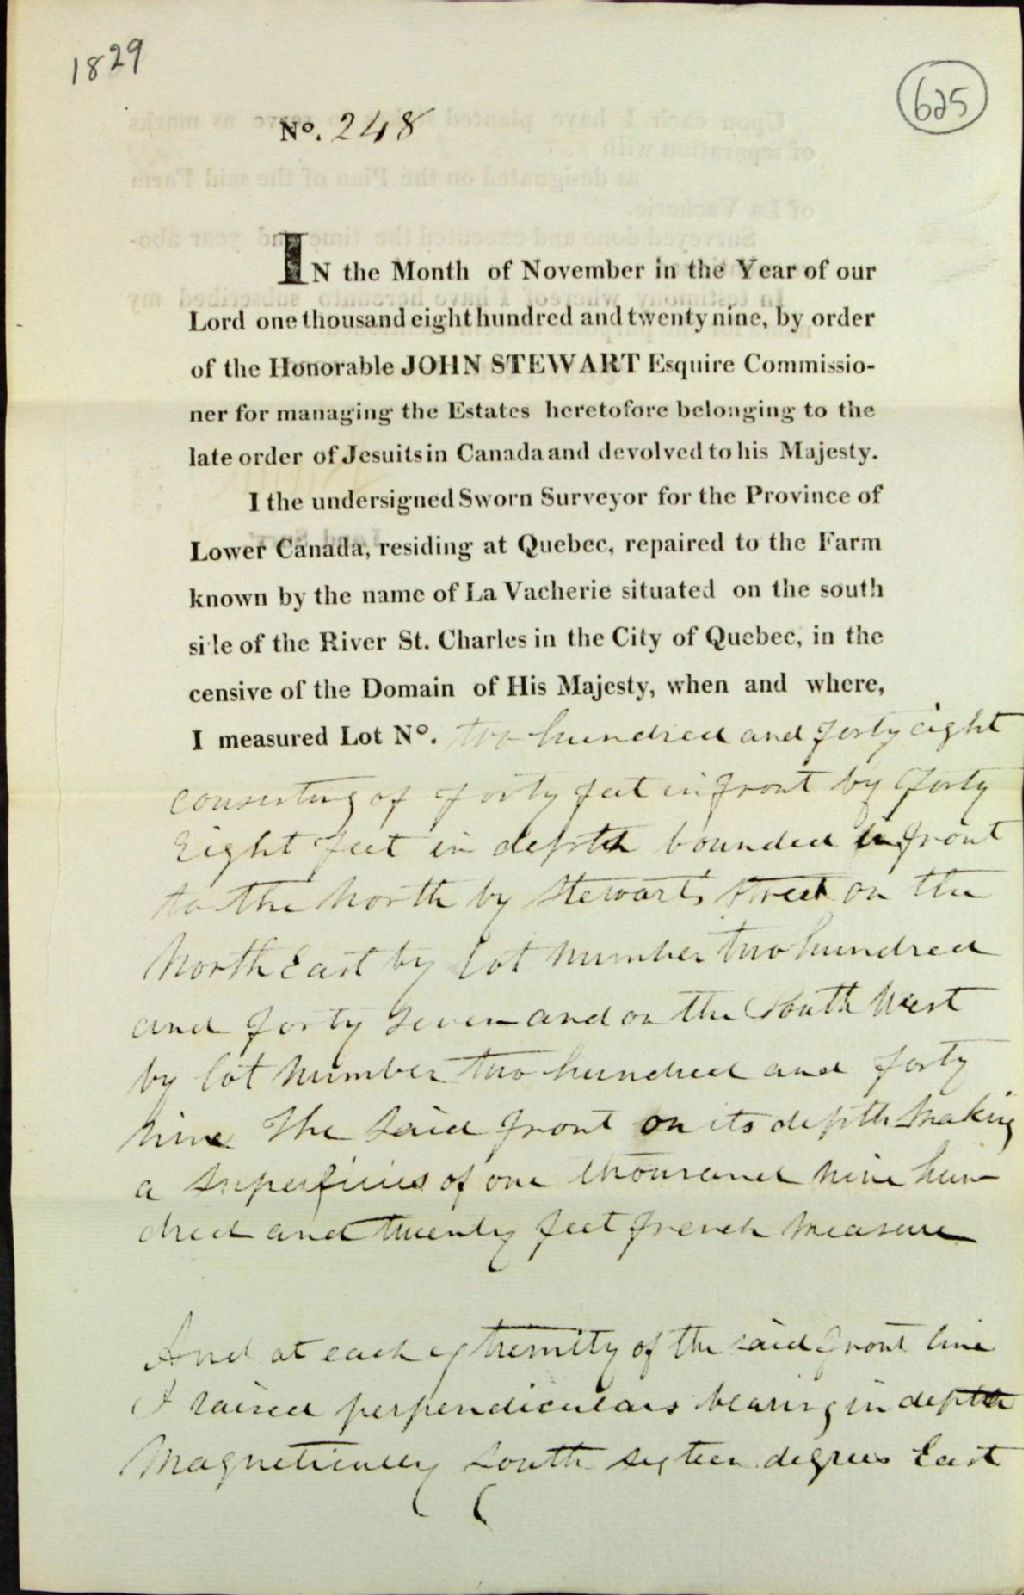 1829
625
No. 248
IN the Month of November in the Year of our
Lord one thousand eight hundred and twenty nine, by order
of the Honorable JOHN STEWART Esquire Commissio-
ner for managing the Estates heretofore belonging to the
late order of Jesuits in Canada and devolved to his Majesty.
I the undersigned Sworn Surveyor for the Province of
Lower Canada, residing at Quebec, repaired to the Farm
known by the name of La Vacherie situated on the south
side of the River St. Charles in the City of Quebec, in the
censive of the Domain of His Majesty, when and where,
I measured Lot No. two hundred and forty eight
consisting of forty feet in front by forty
Eight feet in depth bounded in front
to the North by Stewart's Street on the
North East by lot number two hundred
and forty seven and on the South West
by lot number two hundred and forty
nine The said front on its depth making
a superficies of one thousand nine hun
dred and twenty feet french measure
And at each extremity of the said front line
I raised perpendiculars bearing in depth
Magnetically South sixteen degrees East